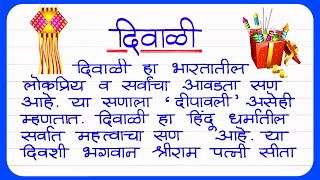 दिवाळी
दिवाळी हा भारतातील
लोकप्रिय व सर्वांचा आवडता सण
आहे. या सणाला ' दीपावली ' असेही
म्हणतात. दिवाळी हा हिंदू धर्मातील
सर्वात महत्वाचा सण आहे. या
दिवशी भगवान श्रीराम पत्नी सीता